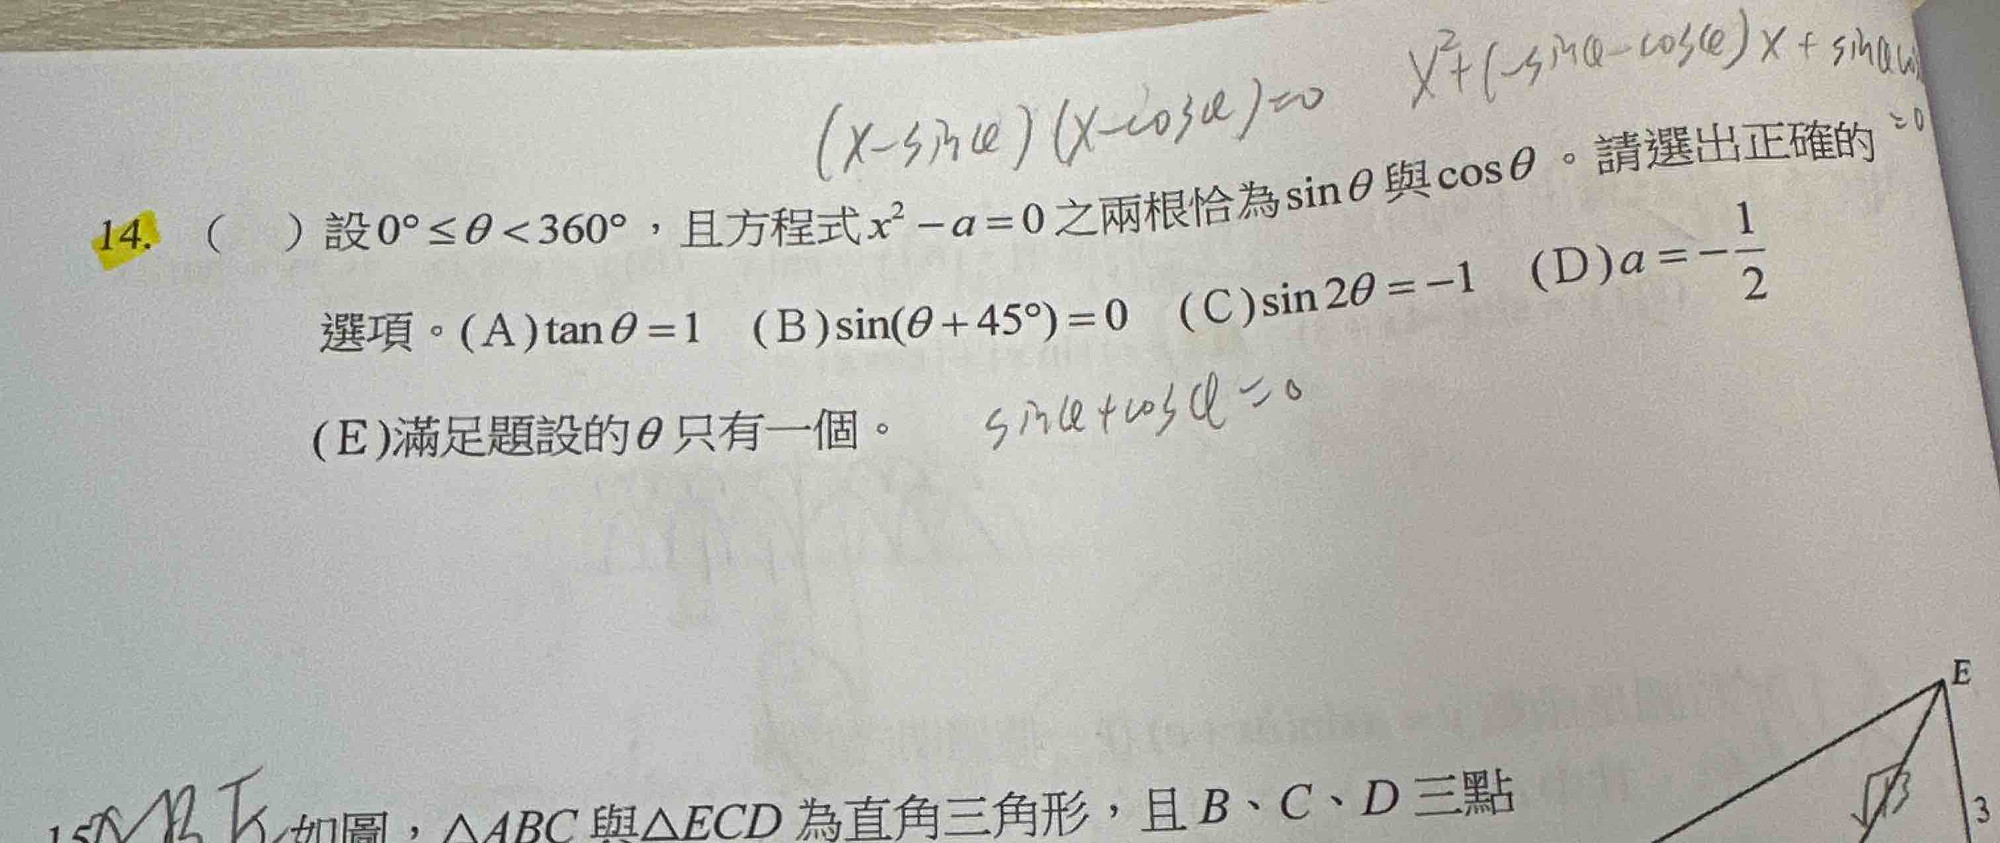 (x-sinθ)(x-cosθ)=0 x²+(-sinθ-cosθ)x+sinθ
=0
14. （ ）設0°≤θ<360°，且方程式x²-a=0之兩根恰為sinθ與cosθ。請選出正確的
選項。(A)tanθ=1 (B)sin(θ+45°)=0 (C)sin2θ=-1 (D)a=-1/2
(E)滿足題設的θ只有一個。 sinθ+cosθ=0
E
3
15 如圖，△ABC與△ECD為直角三角形，且B、C、D三點